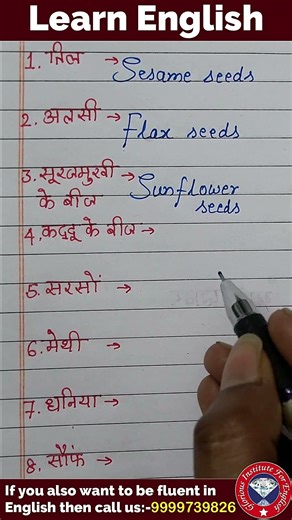 Learn English
1. तिल → Sesame seeds
2. अलसी → Flax seeds
3. सूरजमुखी → Sunflower
के बीज seeds
4. कद्दू के बीज →
5. सरसों →
6. मेथी →
7. धनिया →
8. सौंफ →
If you also want to be fluent in
English then call us:-9999739826
Glorious Institute For English